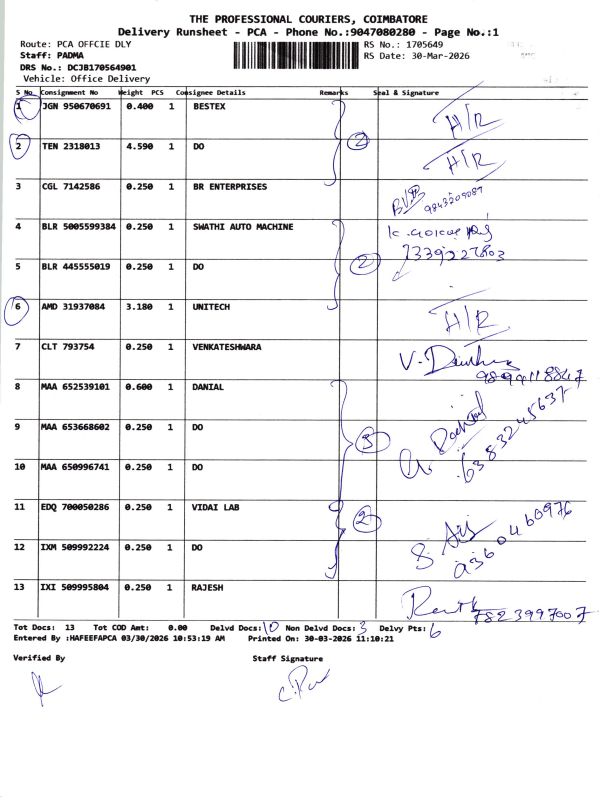 THE PROFESSIONAL COURIERS, COIMBATORE
Delivery Runsheet - PCA - Phone No.:9047080280 - Page No.:1
Route: PCA OFFCIE DLY
RS No.: 1705649
Staff: PADMA
RS Date: 30-Mar-2026
DRS No.: DCJB170564901
Vehicle: Office Delivery
S No. Consignment No Weight PCS Consignee Details Remarks Seal & Signature
1 JGN 950670691 0.400 1 BESTEX H/R
2 TEN 2318013 4.590 1 DO 2 H/R
3 CGL 7142586 0.250 1 BR ENTERPRISES
4 BLR 5005599384 0.250 1 SWATHI AUTO MACHINE
5 BLR 445555019 0.250 1 DO 2
6 AMD 31937084 3.180 1 UNITECH H/R
7 CLT 793754 0.250 1 VENKATESHWARA
8 MAA 652539101 0.600 1 DANIAL
9 MAA 653668602 0.250 1 DO 3 6383245637
10 MAA 650996741 0.250 1 DO
11 EDQ 700050286 0.250 1 VIDAI LAB 2
12 IXM 509992224 0.250 1 DO
13 IXI 509995804 0.250 1 RAJESH 7823997007
Tot Docs: 13 Tot COD Amt: 0.00 Delvd Docs: 10 Non Delvd Docs: 3 Delvy Pts: 6
Entered By :HAFEEFAPCA 03/30/2026 10:53:19 AM Printed On: 30-03-2026 11:10:21
Verified By Staff Signature